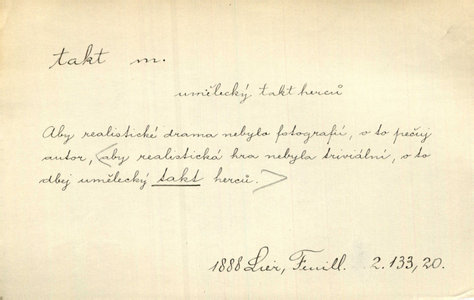 takt m.
umělecký takt herců
Aby realistické drama nebylo fotografií, o to pečuj
autor, <aby realistická hra nebyla triviální, o to
dbej umělecký takt herců.>
1888 Lier, Feuill. 2.133,20.